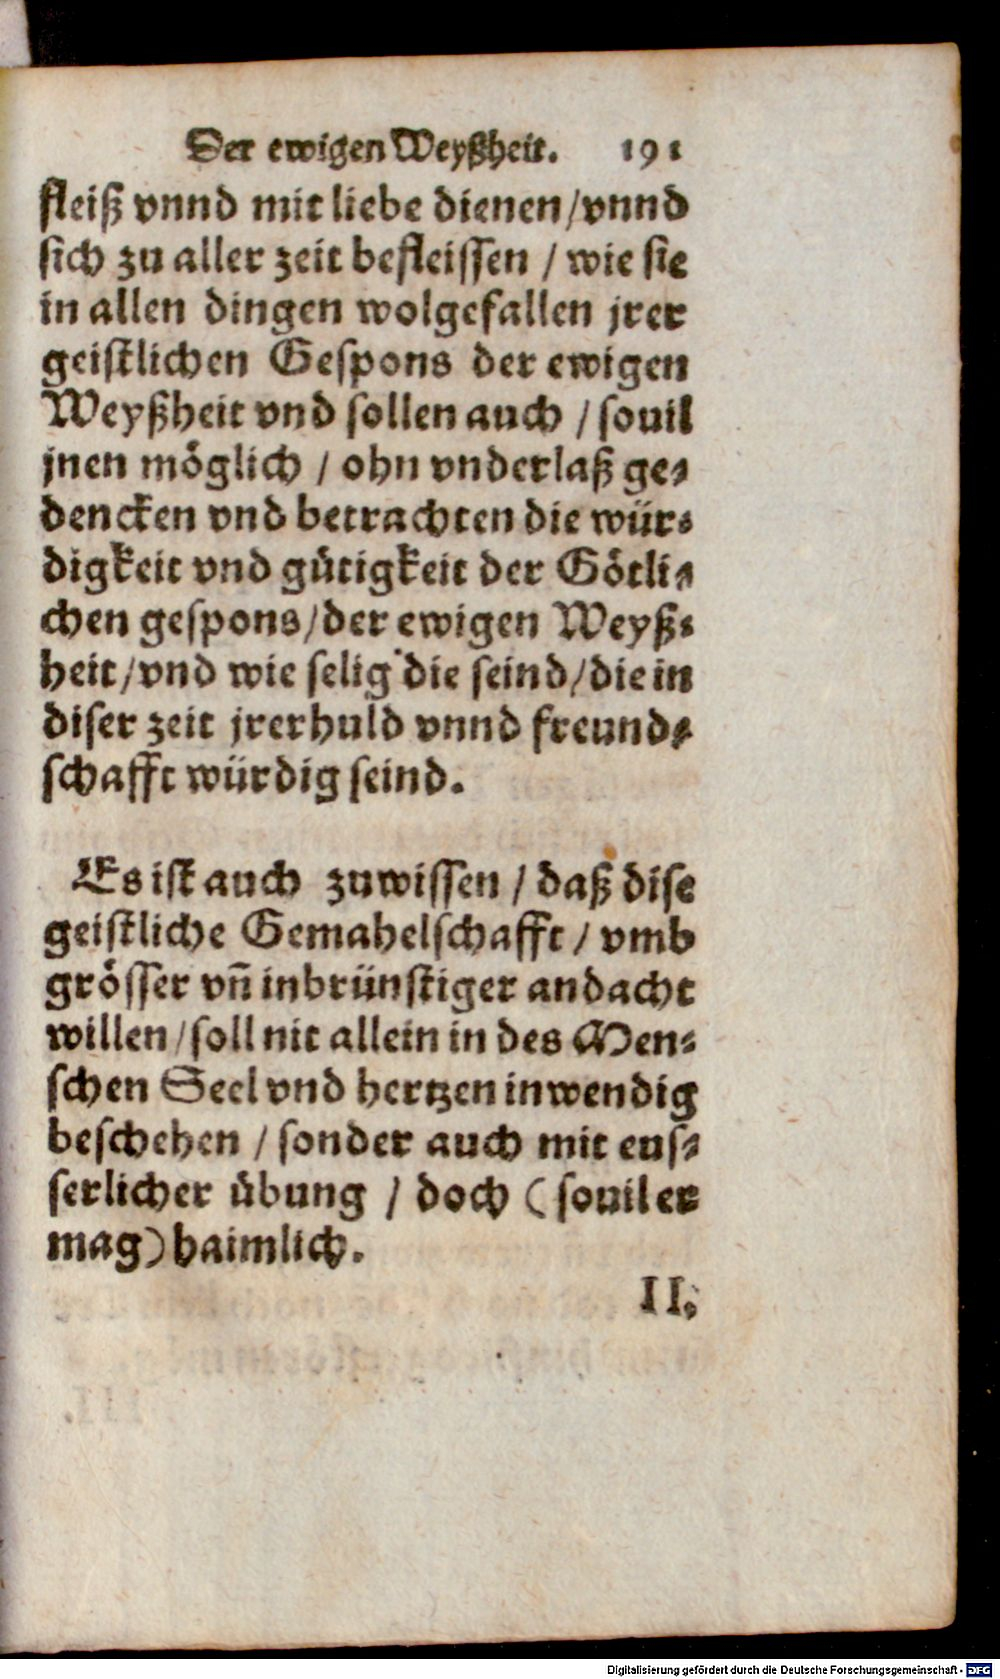 Der ewigen Weyßheit. 191
fleiß vnnd mit liebe dienen/vnnd
sich zu aller zeit befleissen / wie sie
in allen dingen wolgefallen jrer
geistlichen Gespons der ewigen
Weyßheit vnd sollen auch / souil
jnen möglich / ohn vnderlaß ge-
dencken vnd betrachten die wür-
digkeit vnd gütigkeit der Götli-
chen gespons/der ewigen Weyß-
heit/vnd wie selig die seind/die in
diser zeit jrer huld vnnd freund-
schafft würdig seind.
Es ist auch zuwissen / daß dise
geistliche Gemahelschafft / vmb
grösser vn̄ inbrünstiger andacht
willen/soll nit allein in des Men-
schen Seel vnd hertzen inwendig
beschehen / sonder auch mit eus-
serlicher übung / doch ( souil er
mag) haimlich.
II.
Digitalisierung gefördert durch die Deutsche Forschungsgemeinschaft - DFG